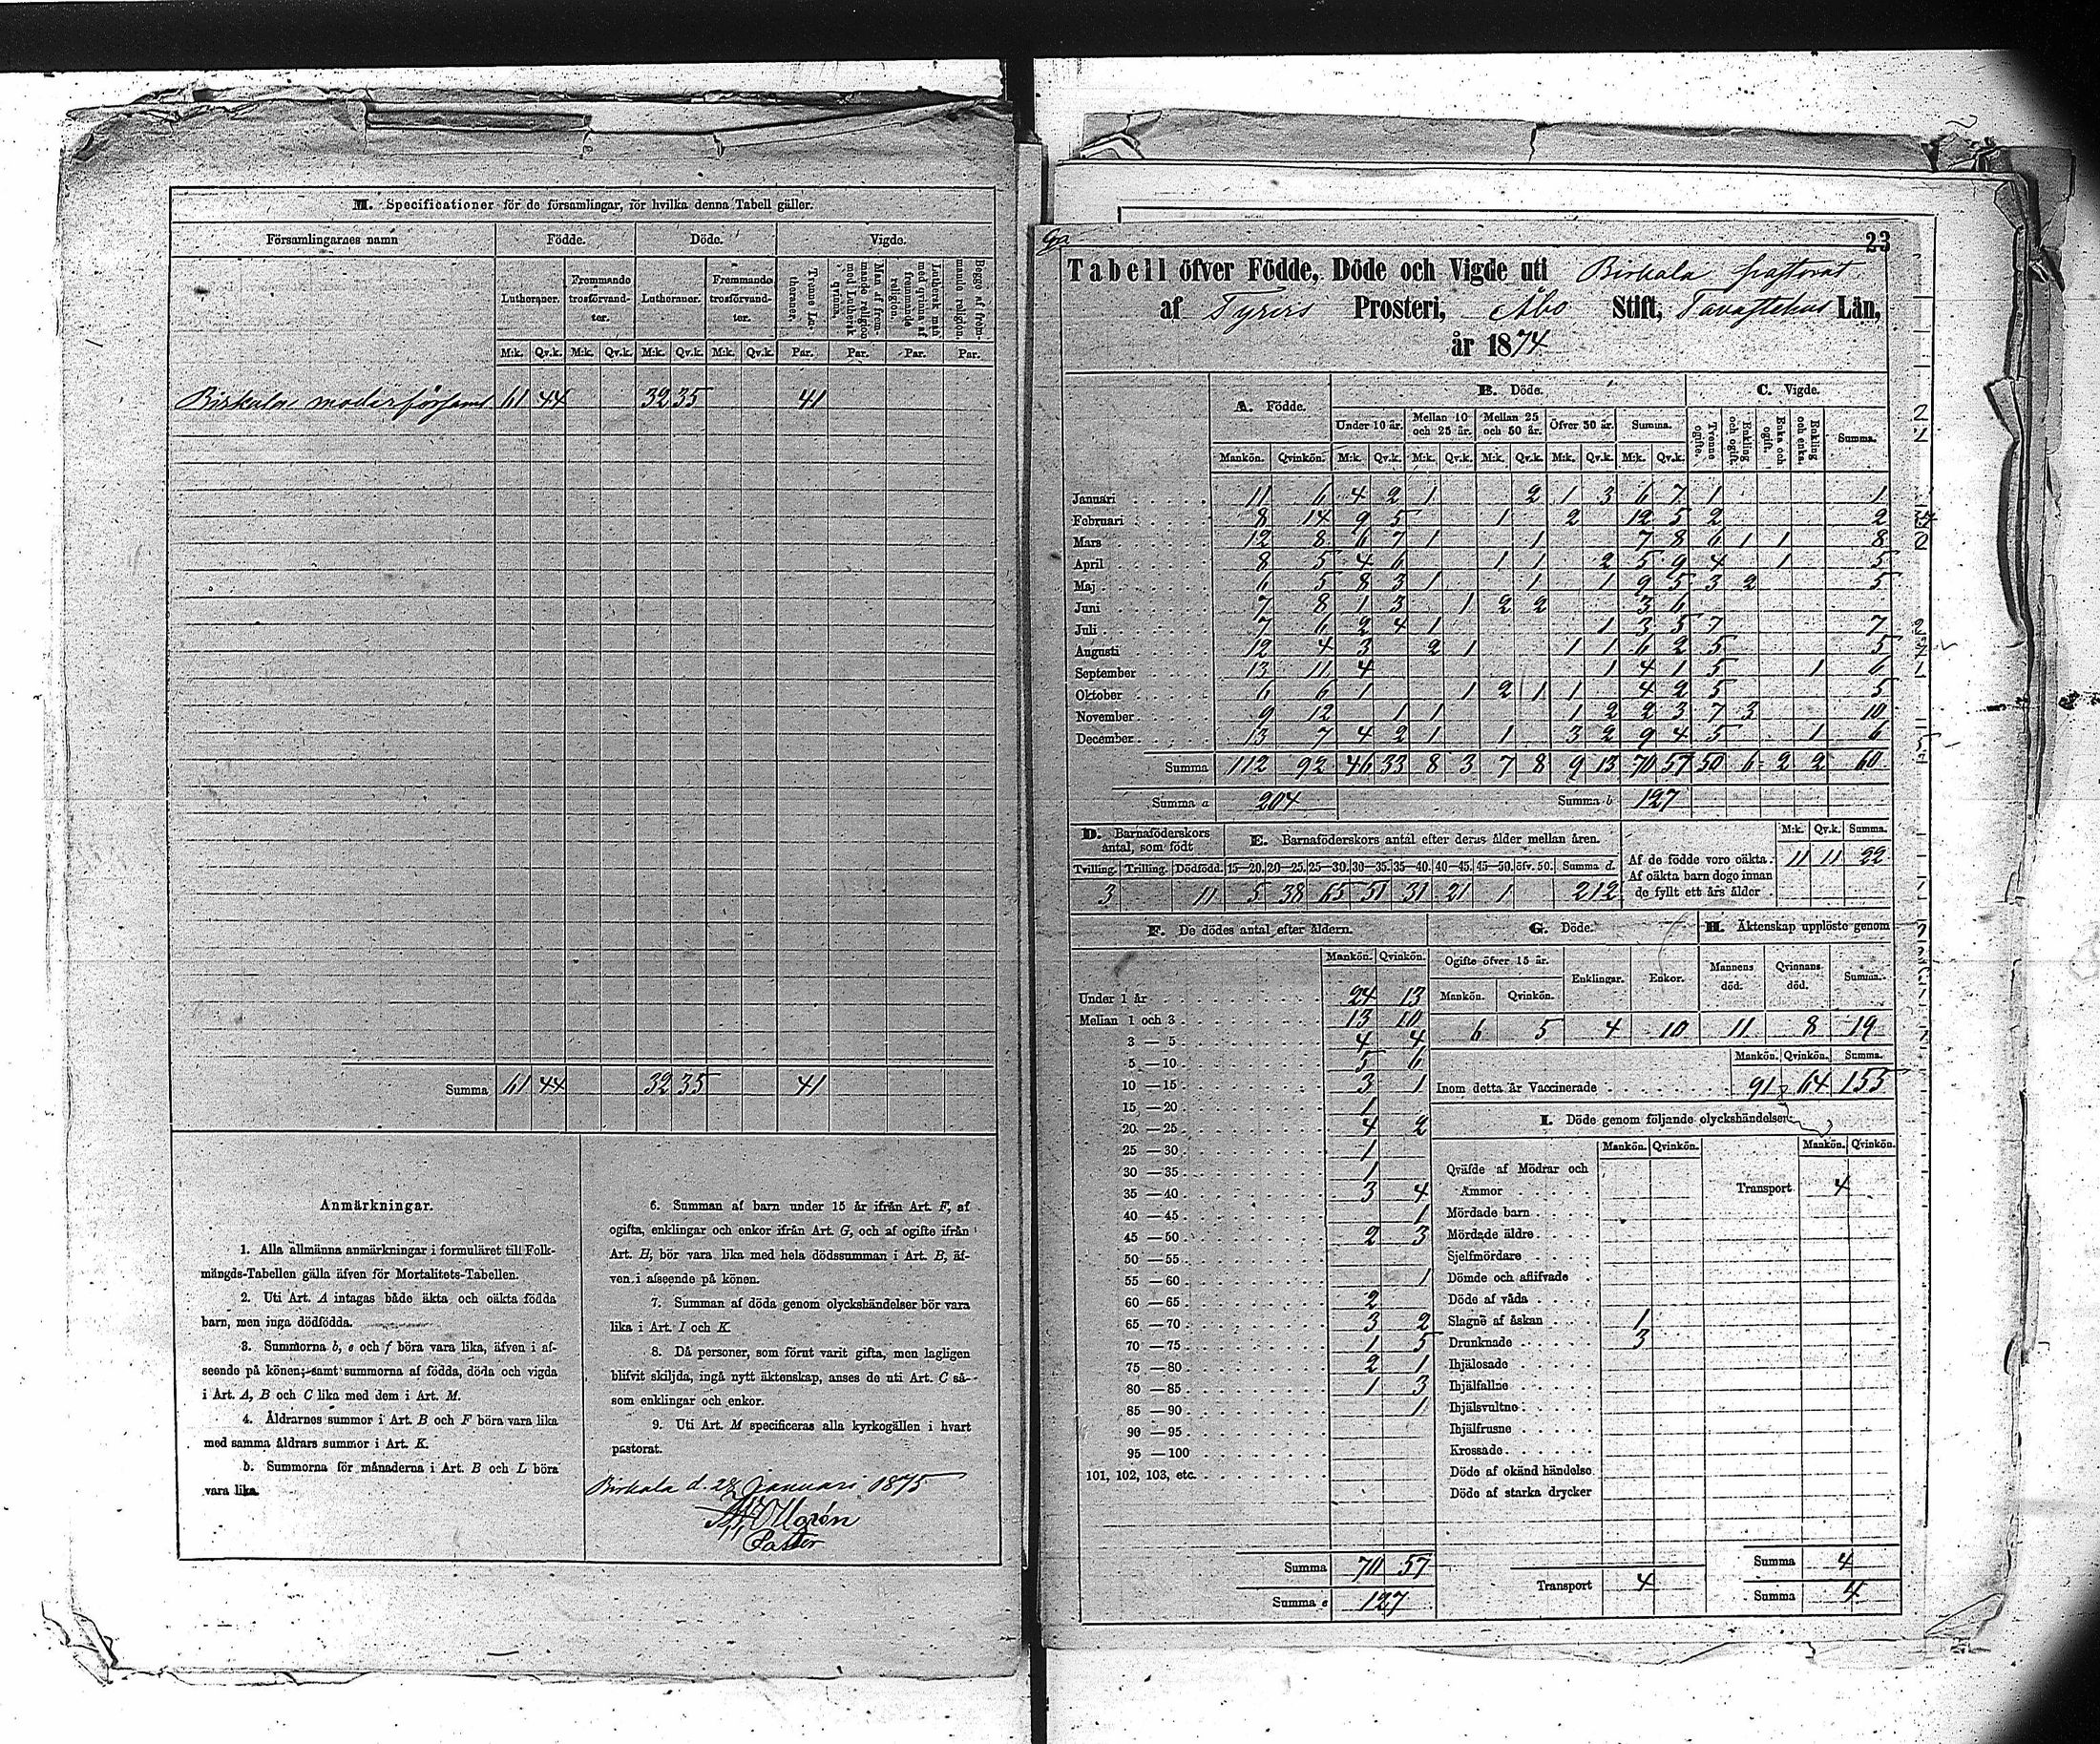 M. Specificationer för de församlingar, för hvilka denna Tabell gäller.
Församlingarnes namn Födde. Döde. Vigde.
Lutheraner. Frammande trosförvandter. Lutheraner. Frammande trosförvandter. Trenne Lutheraner. Man af frammande religion med Luthersk qvinna. Luthersk man med qvinna af frammande religion. Begge af frammande religion.
M:k. Qv.k. M:k. Qv.k. M:k. Qv.k. M:k. Qv.k. Par. Par. Par. Par.
Birkala moderförsaml 61 44 32 35 41
Summa 61 44 32 35 41
Anmärkningar.
1. Alla allmänna anmärkningar i formuläret till Folk-
mängds-Tabellen gälla äfven för Mortalitets-Tabellen.
2. Uti Art. A intagas både äkta och oäkta födda
barn, men inga dödfödda.
3. Summorna b, e och f böra vara lika, äfven i af-
seende på könen; samt summorna af födda, döda och vigda
i Art. A, B och C lika med dem i Art. M.
4. Åldrarnes summor i Art. B och F böra vara lika
med samma åldrars summor i Art. K.
5. Summorna för månaderna i Art. B och L böra
vara lika.
6. Summan af barn under 15 år ifrån Art. F, af
ogifta, enklingar och enkor ifrån Art. G, och af ogifte ifrån
Art. H, bör vara lika med hela dödssumman i Art. B, äf-
ven i afseende på könen.
7. Summan af döda genom olyckshändelser bör vara
lika i Art. I och K.
8. Då personer, som förut varit gifta, men lagligen
blifvit skiljda, ingå nytt äktenskap, anses de uti Art. C så-
som enklingar och enkor.
9. Uti Art. M specificeras alla kyrkogällen i hvart
pastorat.
Birkala d. 28 Januari 1875
Pastor
23
Tabell öfver Födde, Döde och Vigde uti Birkala pastorat
af Tyrvis Prosteri, Åbo Stift, Tavastehus Län,
år 1874
A. Födde. B. Döde. C. Vigde.
Under 10 år. Mellan 10 och 25 år. Mellan 25 och 50 år. Öfver 50 år. Summa. Trenne ogifte. Enkling och ogift. Enka och ogift. Enkling och enka. Summa.
Mankön. Qvinkön. M:k. Qv.k. M:k. Qv.k. M:k. Qv.k. M:k. Qv.k. M:k. Qv.k.
Januari 11 6 4 2 1 2 1 3 6 7 1 1
Februari 8 14 9 5 1 2 12 5 2 2
Mars 12 8 6 7 1 1 7 8 6 1 1 8
April 8 5 4 6 1 1 2 5 9 4 1 5
Maj 6 5 8 3 1 1 1 9 5 3 2 5
Juni 7 8 1 3 1 2 2 3 6
Juli 7 6 2 4 1 1 3 5 7 7
Augusti 12 4 3 2 1 1 1 6 2 5 5
September 13 11 4 1 4 1 5 1 6
Oktober 6 6 1 1 2 1 1 4 2 5 5
November 9 12 1 1 1 2 2 3 7 3 10
December 13 7 4 2 1 1 3 2 9 4 5 1 6
Summa 112 92 46 33 8 3 7 8 9 13 70 57 50 6 2 2 60
Summa a 204 Summa b 127
D. Barnaföderskors antal, som födt
Tvilling. Trilling. Dödfödd.
3 11
E. Barnaföderskors antal efter deras ålder mellan åren.
15—20. 20—25. 25—30. 30—35. 35—40. 40—45. 45—50. öfv. 50. Summa d.
5 38 65 51 31 21 1 212
M:k. Qv.k. Summa.
Af de födde voro oäkta. 11 11 22
Af oäkta barn dogo innan
de fyllt ett års ålder
F. De dödes antal efter åldern.
Mankön. Qvinkön.
Under 1 år 24 13
Mellan 1 och 3 13 10
3 — 5 4 4
5 — 10 5 6
10 — 15 3 1
15 — 20 1
20 — 25 4 2
25 — 30 1
30 — 35 1
35 — 40 3 4
40 — 45 1
45 — 50 2 3
50 — 55
55 — 60 1
60 — 65 2
65 — 70 3 2
70 — 75 1 5
75 — 80 2 1
80 — 85 1 3
85 — 90 1
90 — 95
95 — 100
101, 102, 103, etc.
Summa 70 57
Summa e 127
G. Döde.
Ogifte öfver 15 år. Enklingar. Enkor.
Mankön. Qvinkön.
6 5 4 10
H. Äktenskap upplöste genom
Mannens död. Qvinnans död. Summa.
11 8 19
Mankön. Qvinkön. Summa.
Inom detta år Vaccinerade 91 64 155
I. Döde genom följande olyckshändelser
Mankön. Qvinkön. Mankön. Qvinkön.
Qväfde af Mödrar och
Ammor
Mördade barn
Mördade äldre
Sjelfmördare
Dömde och aflifvade
Döde af våda
Slagne af åskan 1
Drunknade 3
Ihjälosade
Ihjälfallne
Ihjälsvultne
Ihjälfrusne
Krossade
Döde af okänd händelse
Döde af starka drycker
Transport 4
Transport 4
Summa 4
Summa 4